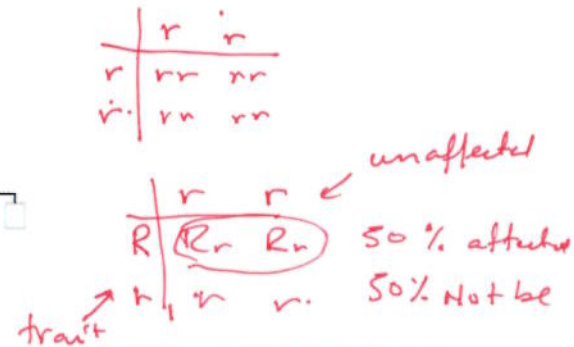 r r
r rr rr
r. rr rr
unaffected
r r
R Rr Rr 50% affected
r r r. 50% Not be
trait